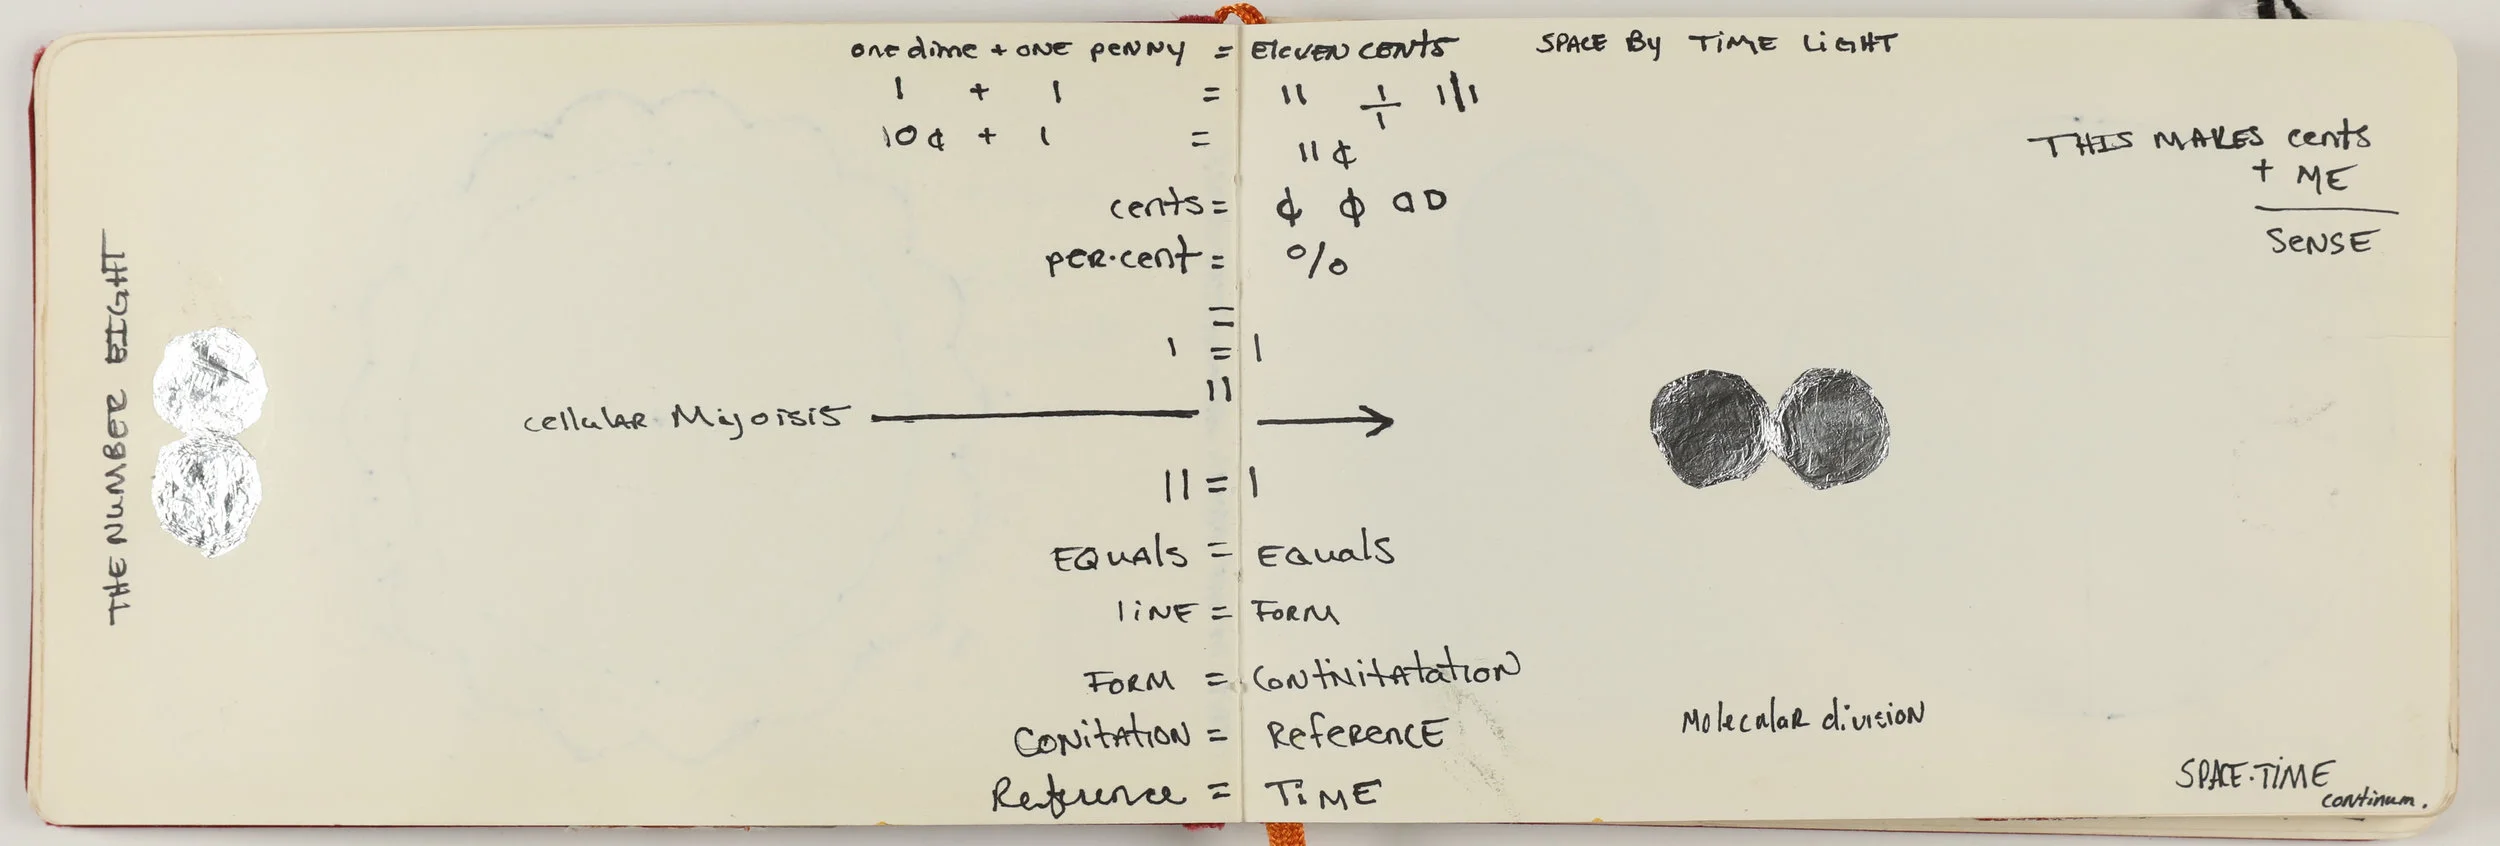 one dime + ONE PENNY = ELEVEN CENTS
SPACE By TiME LiGHT
1 + 1 = 11 1/1 1|1
10¢ + 1 = 11¢
THIS MAKES cents
+ ME
SENSE
cents = ¢ ¢ a D
PER·cent = %
=
1 = 1
11
cellulAR Miyoisis
11 = 1
EQUAls = EQuals
liNE = FORM
FORM = CoNtiNitAtatioN
CONitATION = REfERENCE
Reference = TiME
THE NUMBER EIGHT
MolecalaR divisioN
SPACE·TiME
continum.